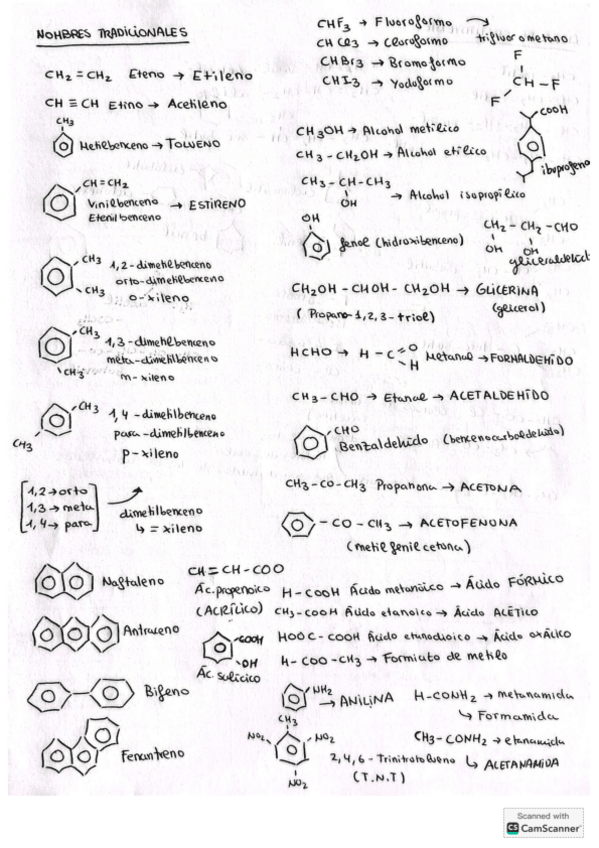 NOMBRES TRADICIONALES
CH₂ = CH₂ Eteno → Etileno
CH ≡ CH Etino → Acetileno
CH₃
Metilbenceno → TOLUENO
CH=CH₂
Vinilbenceno → ESTIRENO
Etenilbenceno
CH₃ 1,2-dimetilbenceno
orto-dimetilbenceno
CH₃
o-xileno
CH₃ 1,3-dimetilbenceno
meta-dimetilbenceno
CH₃
m-xileno
CH₃ 1,4-dimetilbenceno
para-dimetilbenceno
CH₃
p-xileno
1,2→orto
1,3→meta
1,4→para
dimetilbenceno
↳ = xileno
Naftaleno
Antraceno
Bifeno
Fenantreno
CH=CH-COO
Ác. propenoico
(ACRÍLICO)
COOH
OH
Ác salicico
CHF₃ → Fluoroformo
trifluorometano
CHCl₃ → Cloroformo
CHBr₃ → Bromoformo
CHI₃ → Yodoformo
F
CH-F
F
COOH
ibuprofeno
CH₃OH → Alcohol metílico
CH₃ - CH₂OH → Alcohol etílico
CH₃-CH-CH₃
OH
→ Alcohol isopropílico
OH
fenol (hidroxibenceno)
CH₂-CH₂-CHO
OH OH
gliceraldehid
CH₂OH - CHOH - CH₂OH → GLICERINA
(Propano-1,2,3-triol) (glicerol)
HCHO → H-C=O
H
Metanal → FORMALDEHÍDO
CH₃-CHO → Etanal → ACETALDEHÍDO
CHO
Benzaldehído (bencenocarbaldehído)
CH₃-CO-CH₃ Propanona → ACETONA
-CO-CH₃ → ACETOFENONA
(metilfenilcetona)
H-COOH Ácido metanóico → Ácido FÓRMICO
CH₃-COOH Ácido etanoico → Ácido ACÉTICO
HOOC-COOH Ácido etanodioico → Ácido oxálico
H-COO-CH₃ → Formiato de metilo
NH₂
→ ANILINA
H-CONH₂ → metanamida
↳ Formamida
CH₃
NO₂ NO₂
NO₂
2,4,6-Trinitrotolueno
(T.N.T)
CH₃-CONH₂ → etanamida
↳ ACETANAMIDA
Scanned with
CS CamScanner